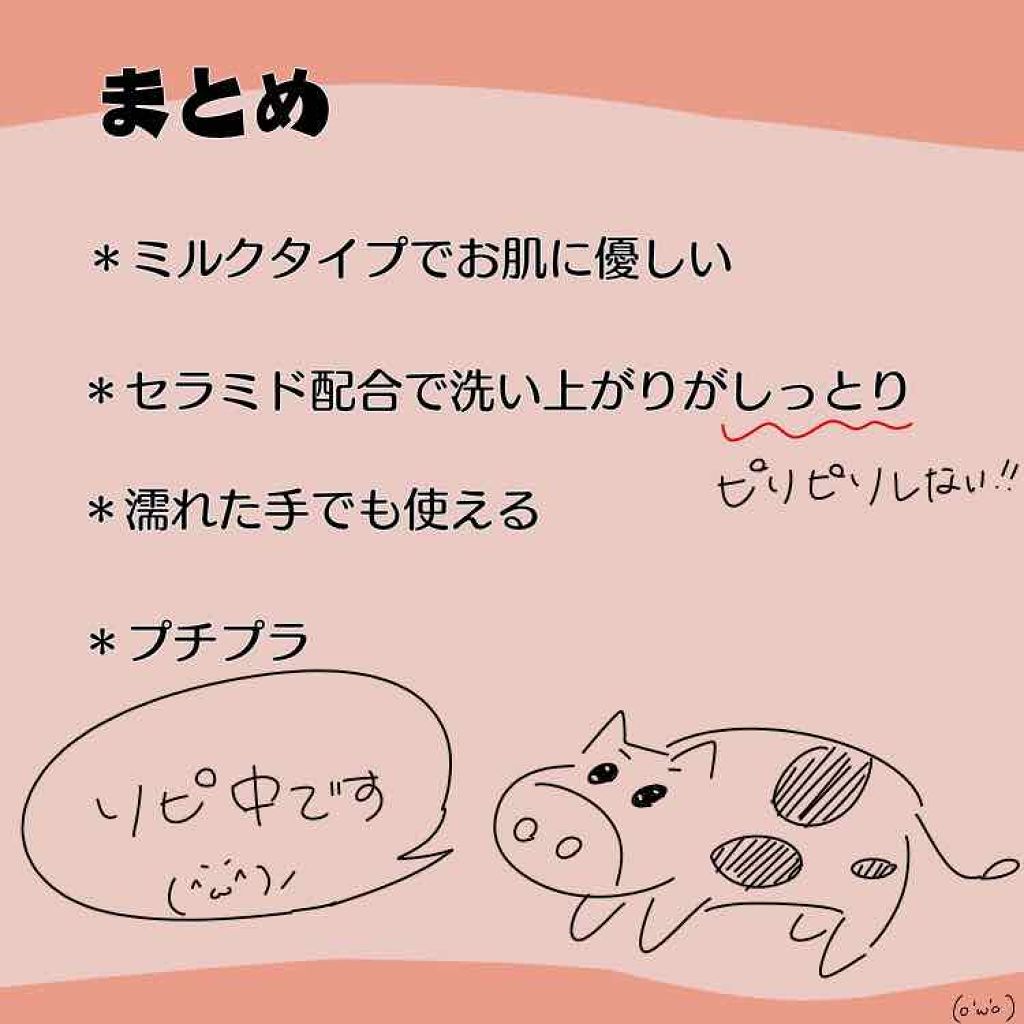 まとめ
*ミルクタイプでお肌に優しい
*セラミド配合で洗い上がりがしっとり
ピリピリしない!!
*濡れた手でも使える
*プチプラ
リピ中です
(^ω^)ノ
(o'ω'o)